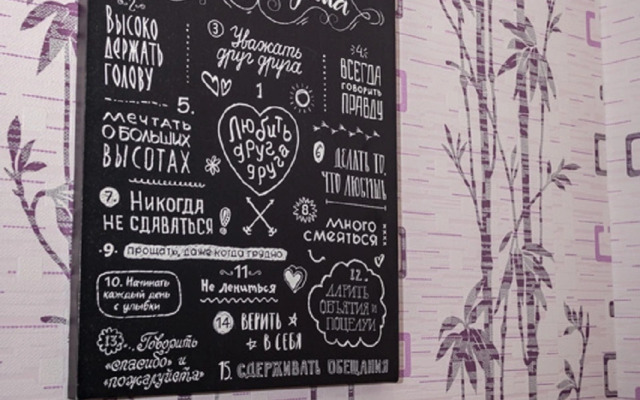 2.
ВЫСОКО
ДЕРЖАТЬ
ГОЛОВУ
3
Уважать
друг друга
4.
ВСЕГДА
ГОВОРИТЬ
ПРАВДУ
1
Любить
друг
друга
5.
МЕЧТАТЬ
О БОЛЬШИХ
ВЫСОТАХ
6
ДЕЛАТЬ ТО,
ЧТО ЛЮБИШЬ
7.
НИКОГДА
НЕ СДАВАТЬСЯ!
8.
МНОГО
СМЕЯТЬСЯ
9. прощать, даже когда трудно
10. Начинать
каждый день
с улыбки
11
Не лениться
12.
ДАРИТЬ
ОБЪЯТИЯ И
ПОЦЕЛУИ
13. Говорить
«спасибо» и
«пожалуйста»
14 ВЕРИТЬ
В СЕБЯ
15. СДЕРЖИВАТЬ ОБЕЩАНИЯ